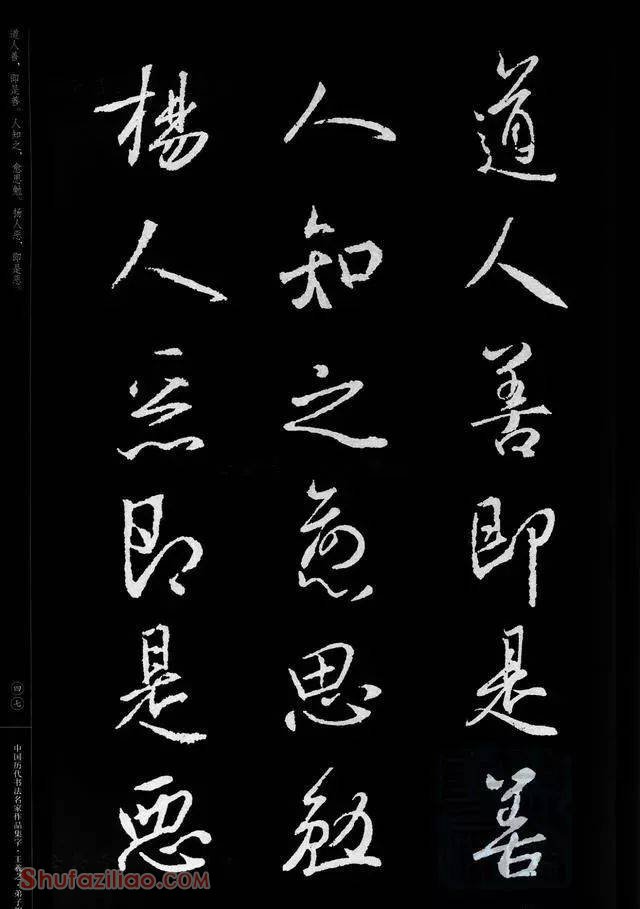 道人善即是善
人知之愈思勉
楊人惡即是惡
道人善，即是善。人知之，愈思勉。扬人恶，即是恶。
四七
中国历代书法名家作品集字·王羲之·弟子
Shufaziliao.com